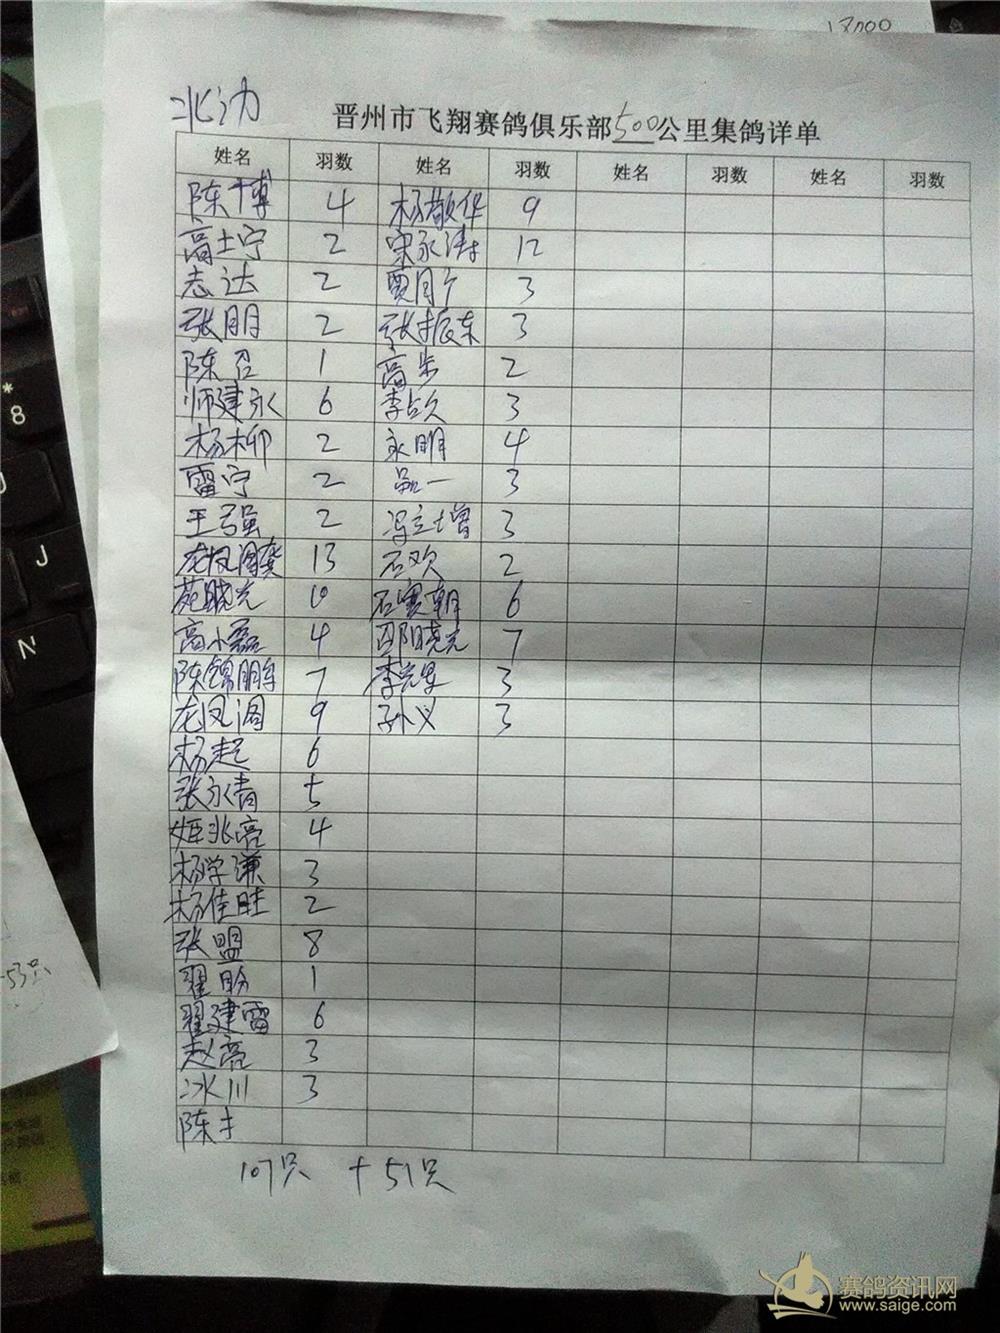 北边
晋州市飞翔赛鸽俱乐部500公里集鸽详单
姓名 羽数 姓名 羽数 姓名 羽数 姓名 羽数
陈博 4 杨敬华 9
高士宁 2 宋永涛 12
志达 2 贾月 3
张朋 2 张振东 3
陈召 1 高步 2
师建永 6 李占久 3
杨柳 2 永明 4
雷宁 2 一 3
王弓强 2 冯立增 3
龙凤阁龚 13 石欢 2
苑晓光 10 石寒朝 6
高小磊 4 欧阳晓光 7
陈锦鹏 7 李 3
龙凤阁 9 孙义 3
杨起 6
张永青 5
姬兆亮 4
杨学谦 3
杨佳旺 2
张盟 8
翟盼 1
翟建雷 6
赵亮 3
冰川 3
陈
107只 +51只
53只
* 8
J
N
赛鸽资讯网
www.saige.com